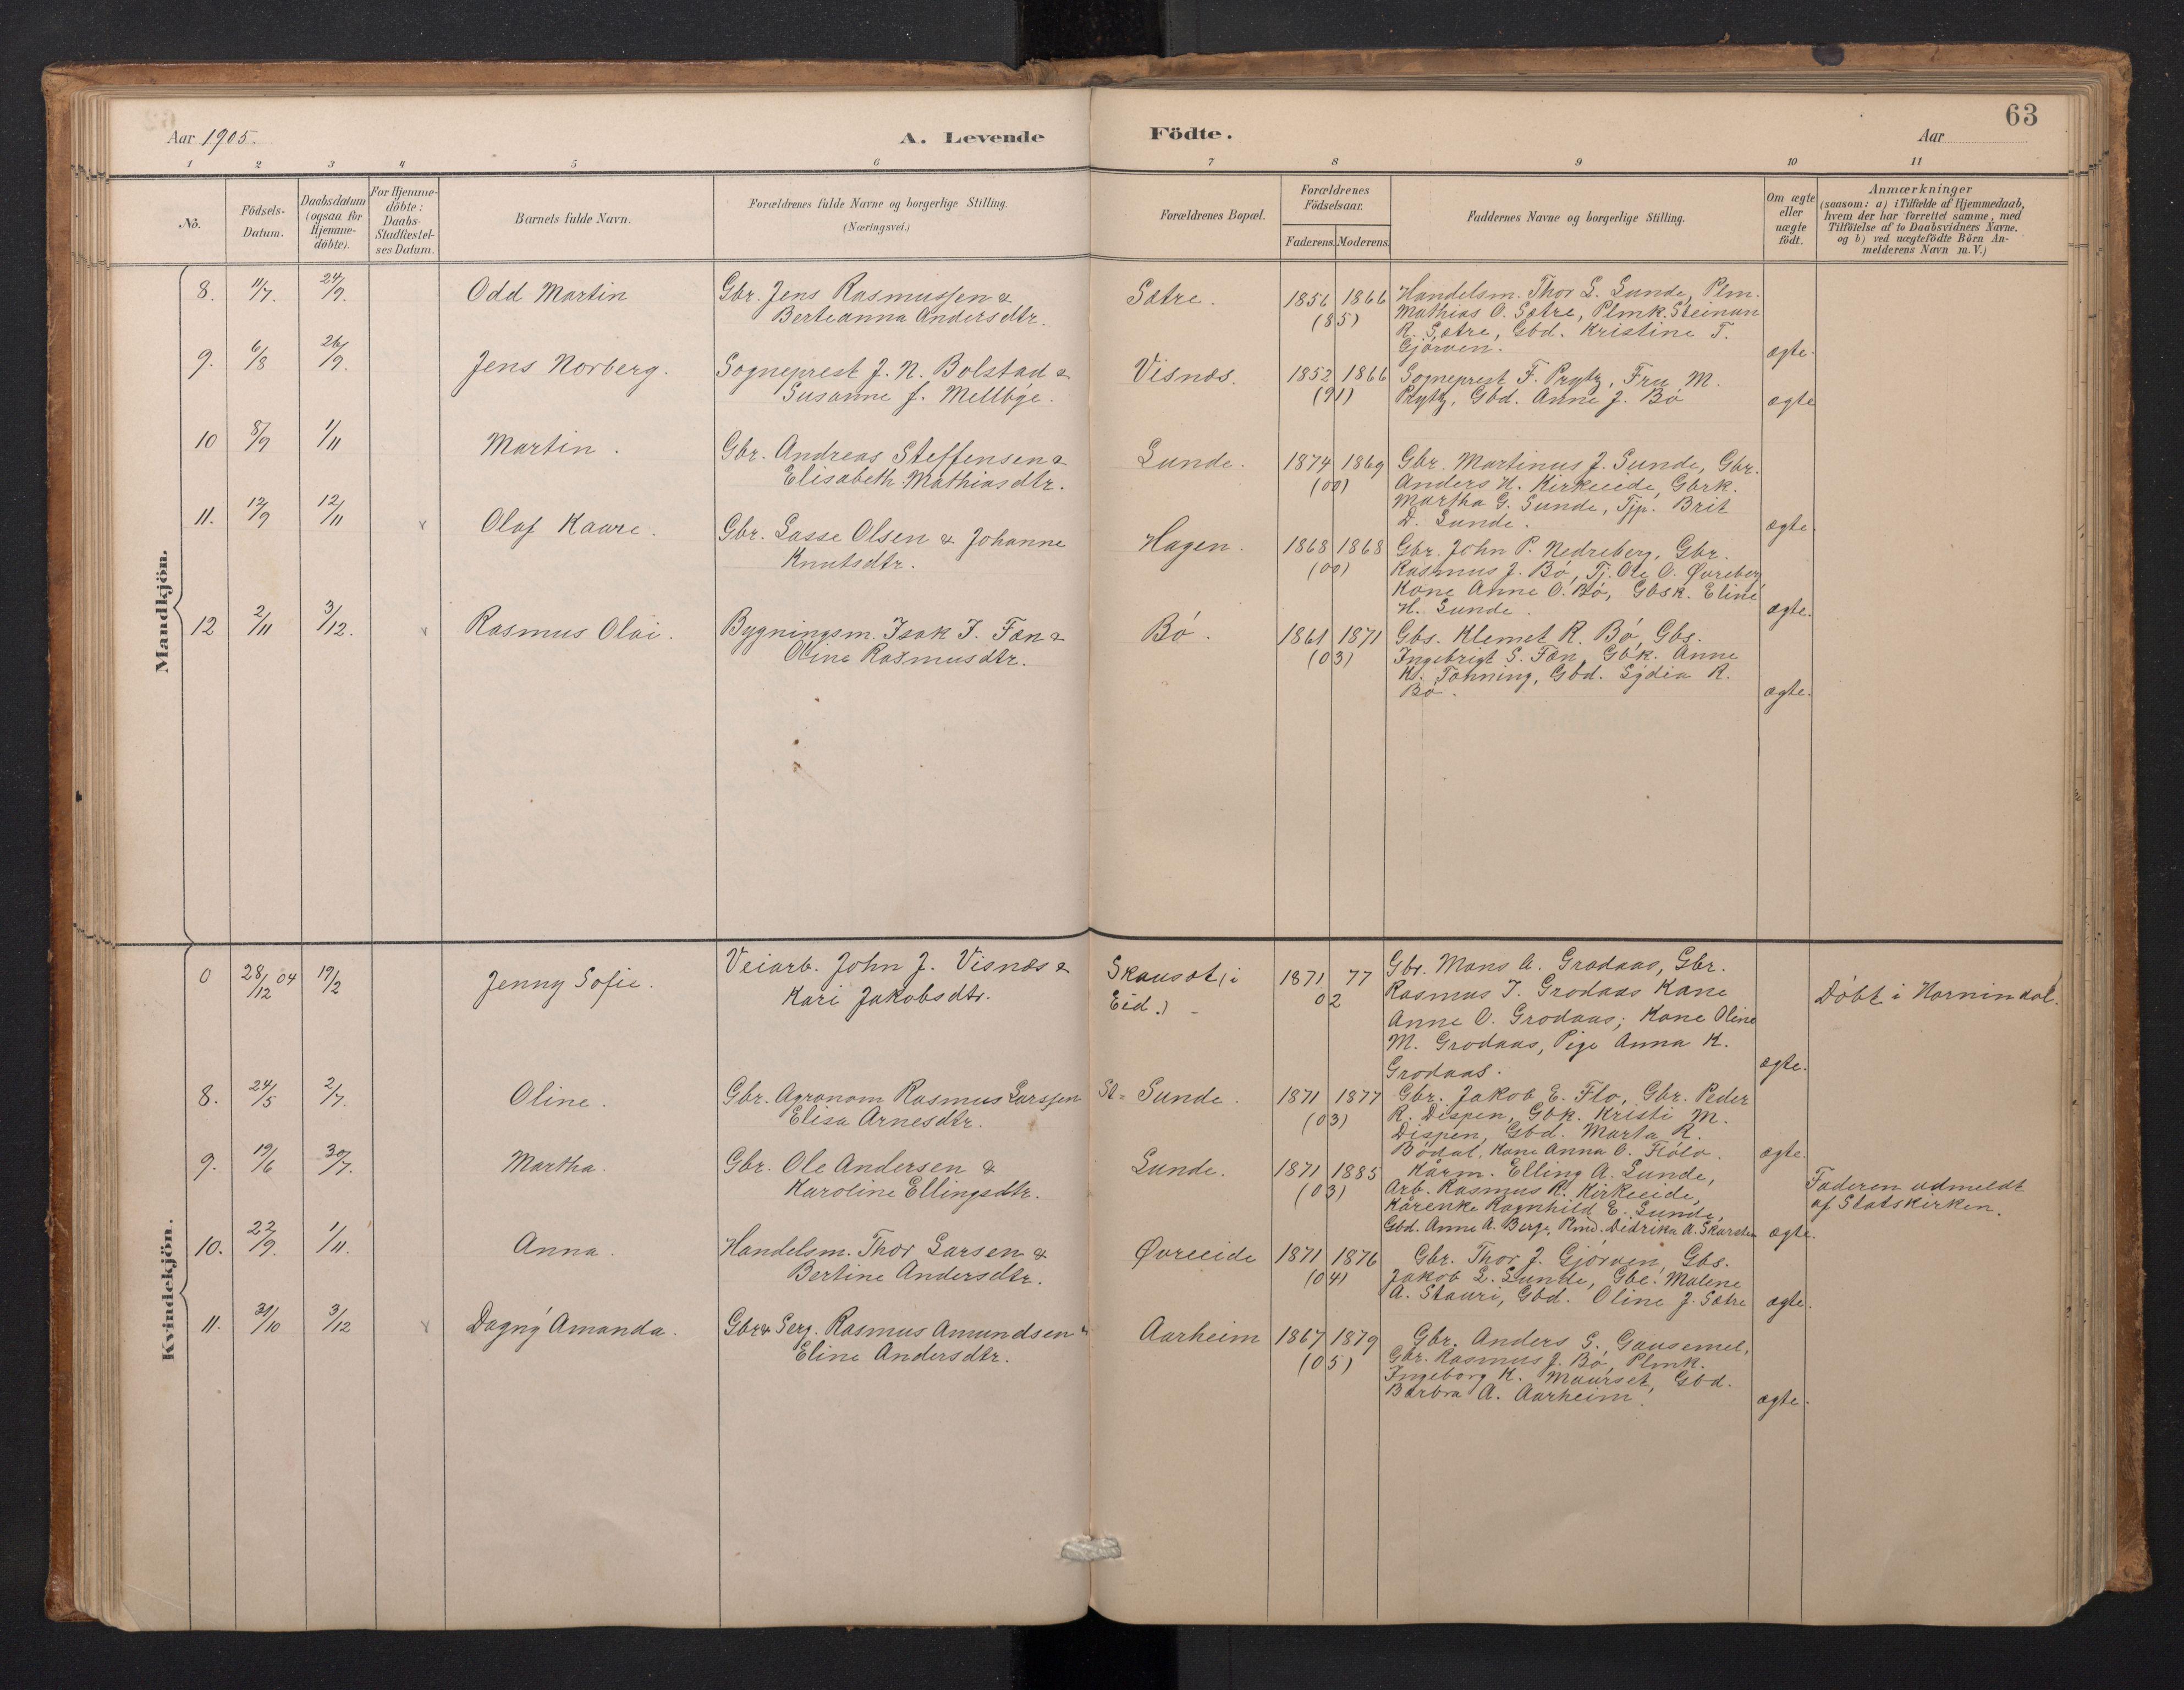 63
Aar 1905. A. Levende Födte. Aar
1 2 3 4 5 6 7 8 9 10 11
No.
Födsels-Datum.
Daabsdatum (ogsaa for Hjemme-döbte).
For Hjemme-döbte: Daabs-Stadfæstel-ses Datum.
Barnets fulde Navn.
Forældrenes fulde Navne og borgerlige Stilling.
(Næringsvei.)
Forældrenes Bopæl.
Forældrenes Födselsaar.
Faderens. Moderens.
Faddernes Navne og borgerlige Stilling.
Om ægte eller uægte födt.
Anmærkninger
(saasom: a) i Tilfælde af Hjemmedaab,
hvem der har forrettet samme, med
Tilföielse af to Daabsvidners Navne,
og b) ved uægtefödte Börn An-
melderens Navn m. V.)
Mandkjön.
8. 11/7. 24/9. Odd Martin Gbr. Jens Rasmussen & Sætre. 1856 1866 Handelsm. Thor L. Sunde, Plm.
Berteanna Andersdtr. (85) Mathias O. Sætre, Plmk. Steinun
R. Sætre, Gbd. Kristine T.
Gjørven. ægte.
9. 6/8 26/9. Jens Norberg. Sogneprest J. N. Bolstad & Visnæs. 1852 1866 Sogneprest F. Prytz, Fru M.
Susanne J. Mellbye. (91) Prytz, Gbd. Anne J. Bö ægte
10 8/9 1/11 Martin. Gbr. Andreas Steffensen & Sunde. 1874 1869 Gbr. Martinus J. Sunde, Gbr.
Elisabeth Mathiasdtr. (00) Anders H. Kirkeeide, Gbrk.
Martha G. Sunde, Tjp. Brit
D. Sunde. ægte.
11. 12/9 12/11 v Olaf Kaare. Gbr. Lasse Olsen & Johanne Hagen. 1868 1868 Gbr. John P. Nedreberg, Gbr.
Knutsdtr. (00) Rasmus J. Bö, Tj. Ole O. Øvreberg
Kone Anne O. Bö, Gbsk. Eline
H. Sunde. ægte.
12 2/11 3/12. v Rasmus Olai. Bygningsm. Isak I. Fæn & Bö. 1861 1871 Gbs. Klemet R. Bö, Gbs.
Oline Rasmusdtr. (03) Ingebrigt S. Fæn, Gbk. Anne
Kr. Tonning, Gbd. Lydia R.
Bö. ægte.
Kvindekjön.
0 28/12 04 19/2 Jenny Sofie. Veiarb. John J. Visnæs & Skausæt (i 1871 77 Gbr. Mons A. Grodaas, Gbr.
Kari Jakobsdtr. Eid.) 02 Rasmus I. Grodaas Kone Döbt i Hornindal.
Anne O. Grodaas; Kone Oline
M. Grodaas, Pige Anna K.
Grodaas. ægte.
8. 24/5 2/7. Oline. Gbr. Agronom Rasmus Larssen St= Sunde. 1871 1877 Gbr. Jakob E. Flo, Gbr. Peder
Elisa Arnesdtr. (03) R. Dispen, Gbk. Kristi M.
Dispen, Gbd. Marta R.
Bödal, Kone Anna O. Flölo. ægte.
9. 19/6 30/7. Martha. Gbr. Ole Andersen & Sunde. 1871 1885 Kårm. Elling A. Sunde, Faderen udmeldt
Karoline Ellingsdtr. (03) Arb. Rasmus R. Kirkeeide, af Statskirken.
Kårenke Ragnhild E. Sunde,
Gbd. Anne A. Berge, Plmd. Didrika A. Skarsten ægte.
10. 22/9. 1/11. Anna. Handelsm. Thor Larsen & Øvreeide 1871 1876 Gbr. Thor J. Gjörven, Gbs.
Bertine Andersdtr. (04) Jakob L. Sunde, Gbe. Malene
A. Stauri, Gbd. Oline J. Sætre ægte.
11. 31/10 3/12 v Dagny Amanda. Gbr & Serg. Rasmus Amundsen & Aarheim 1867 1879 Gbr. Anders S. Gausemel,
Eline Andersdtr. (05) Gbr. Rasmus J. Bö, Plmk.
Ingeborg K. Maurset, Gbd.
Barbra A. Aarheim. ægte.